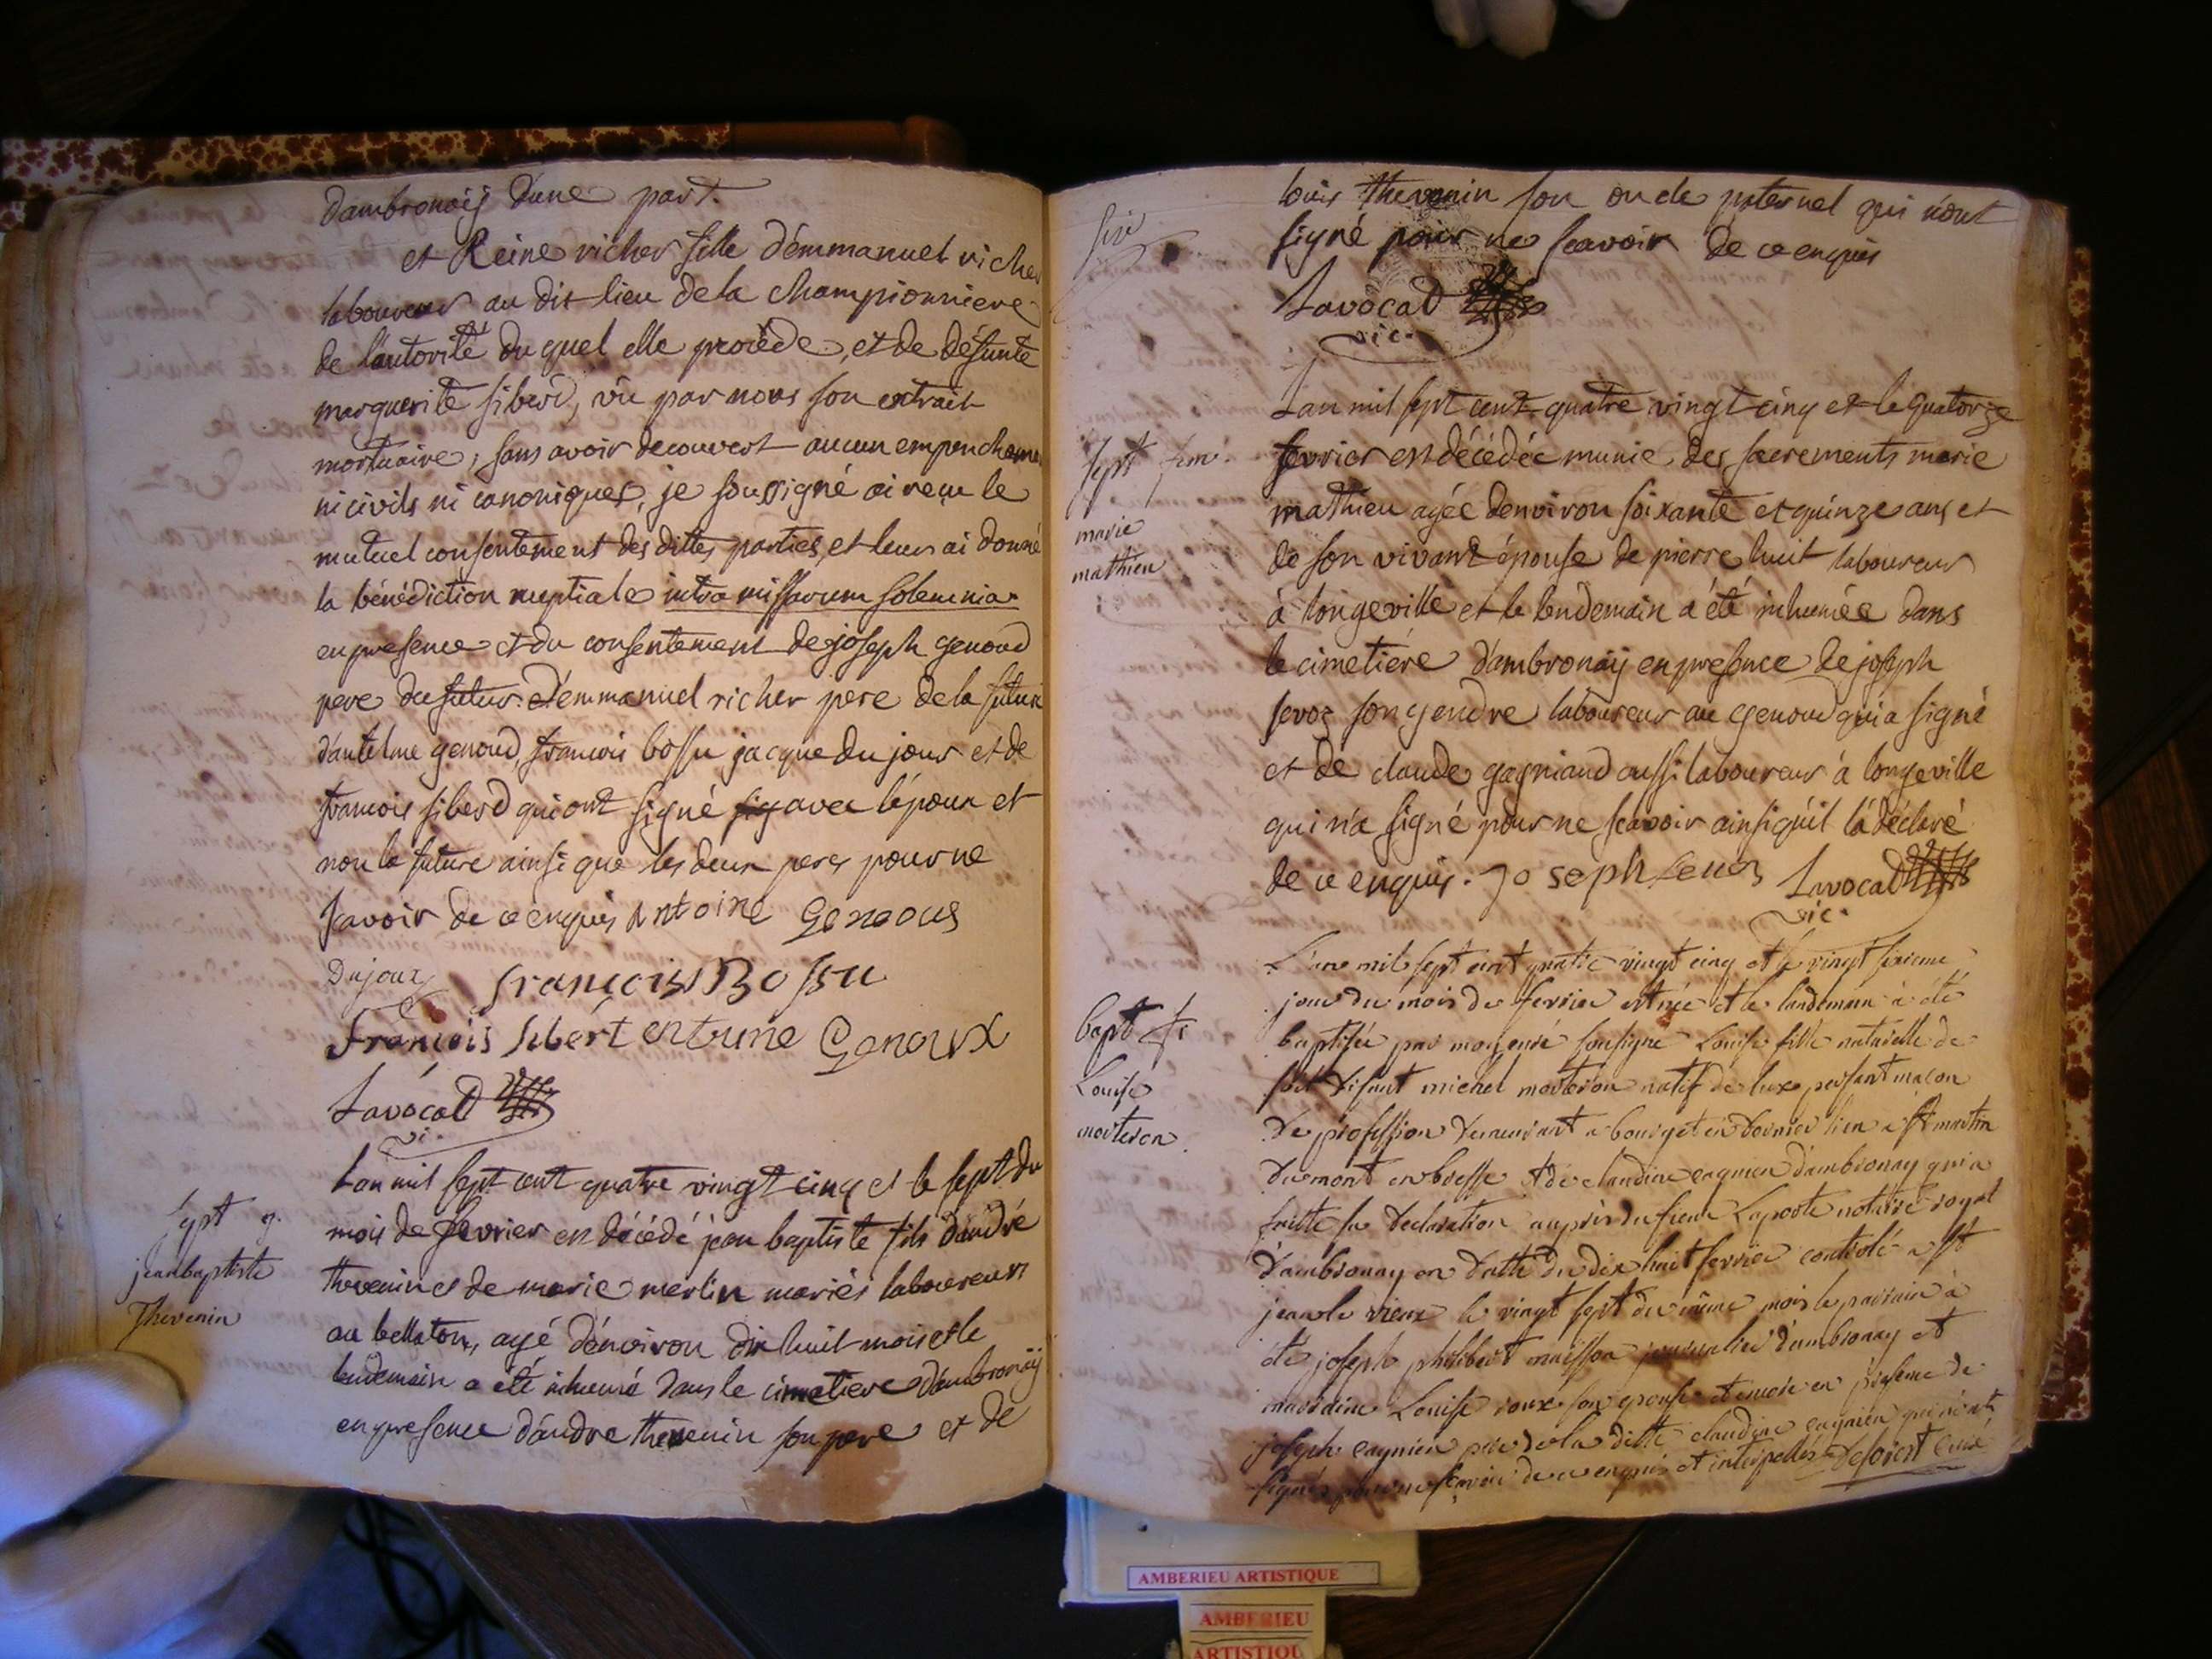 dambronaÿ d'une part.
et Reine richer fille d'emmanuel richer
laboureur au dit lieu de la championniere
de l'autorité du quel elle procède, et de défunte
marguerite siberd, vû par nous son extrait
mortuaire, sans avoir decouvert aucun empencheme
ni civils ni canoniques, je soussigné ai reçu le
mutuel consentement des dittes parties, et leurs ai donné
la bénédiction nuptiale intra missarum solemnia
en presence et du consentement de joseph genoud
pere du futur. d'emmanuel richer pere de la future
d'antelme genoud, francois bossu jacque dujour et de
francois siberd qui ont signé avec lépoux et
non la future ainsi que les deux peres pour ne
scavoir de ce enquis Antoine Genous
Dujour françois Bossu
François sibert entume Genoux
Lavocad
vic.
Lan mil sept cent quatre vingt cinq et le sept du
sept g.
mois de fevrier est décédé jean baptiste fils d'andré
jean baptiste
thevenin et de marie merlin mariés laboureurs
Thevenin
au bellaton, agé d'environ dix huit mois et le
lendemain a été inhumé dans le cimetiere d'ambronaÿ
en presence d'andre thevenin son pere et de
louis thevenin son oncle paternel qui n'ont
signé pour ne scavoir de ce enquis
Lavocad
vic.
Lan mil sept cent quatre vingt cinq et le quatorze
sept fem.
fevrier est décédée munie des sacrements marie
marie
mathieu agée denviron soixante et quinze ans et
mathieu
de son vivant épouse de pierre huit laboureur
à longeville et le lendemain a été inhumée dans
le cimetière d'ambronaÿ en presence de joseph
son gendre laboureur au genoud qui a signé
et de claude gagniaud aussi laboureur à longeville
qui n'a signé pour ne scavoir ainsi qu'il l'a déclaré
de ce enquis. Joseph Lavocad
vic.
L'an mil sept cent quatre vingt cinq et le vingt sixieme
jour du mois de fevrier est née et le landemain à été
bapt fe
baptisée par moy curé soussigné Louise fille naturelle de
Louise
michel morteron natif de maçon
morteron
de profession demeurant a bourg et en dernier lieu a St martin
du mont en bresse et de claudine cagnien d'ambronay qui a
faitte sa declaration auprès du sieur Laporte notaire royal
d'ambronay en datte du dix huit fevrier controlé a St
jean le vieux le vingt sept du même mois le parrain à
été joseph philibert maisson journalier d'ambronay et
marraine Louise roux son epouse et encore en présence de
joseph cagnien pere de la ditte claudine cagnien qui n'ont
signés pour ne sçavoir de ce enquis et interpellés Deforest Curé
AMBERIEU ARTISTIQUE
AMBERIEU
ARTISTIQU